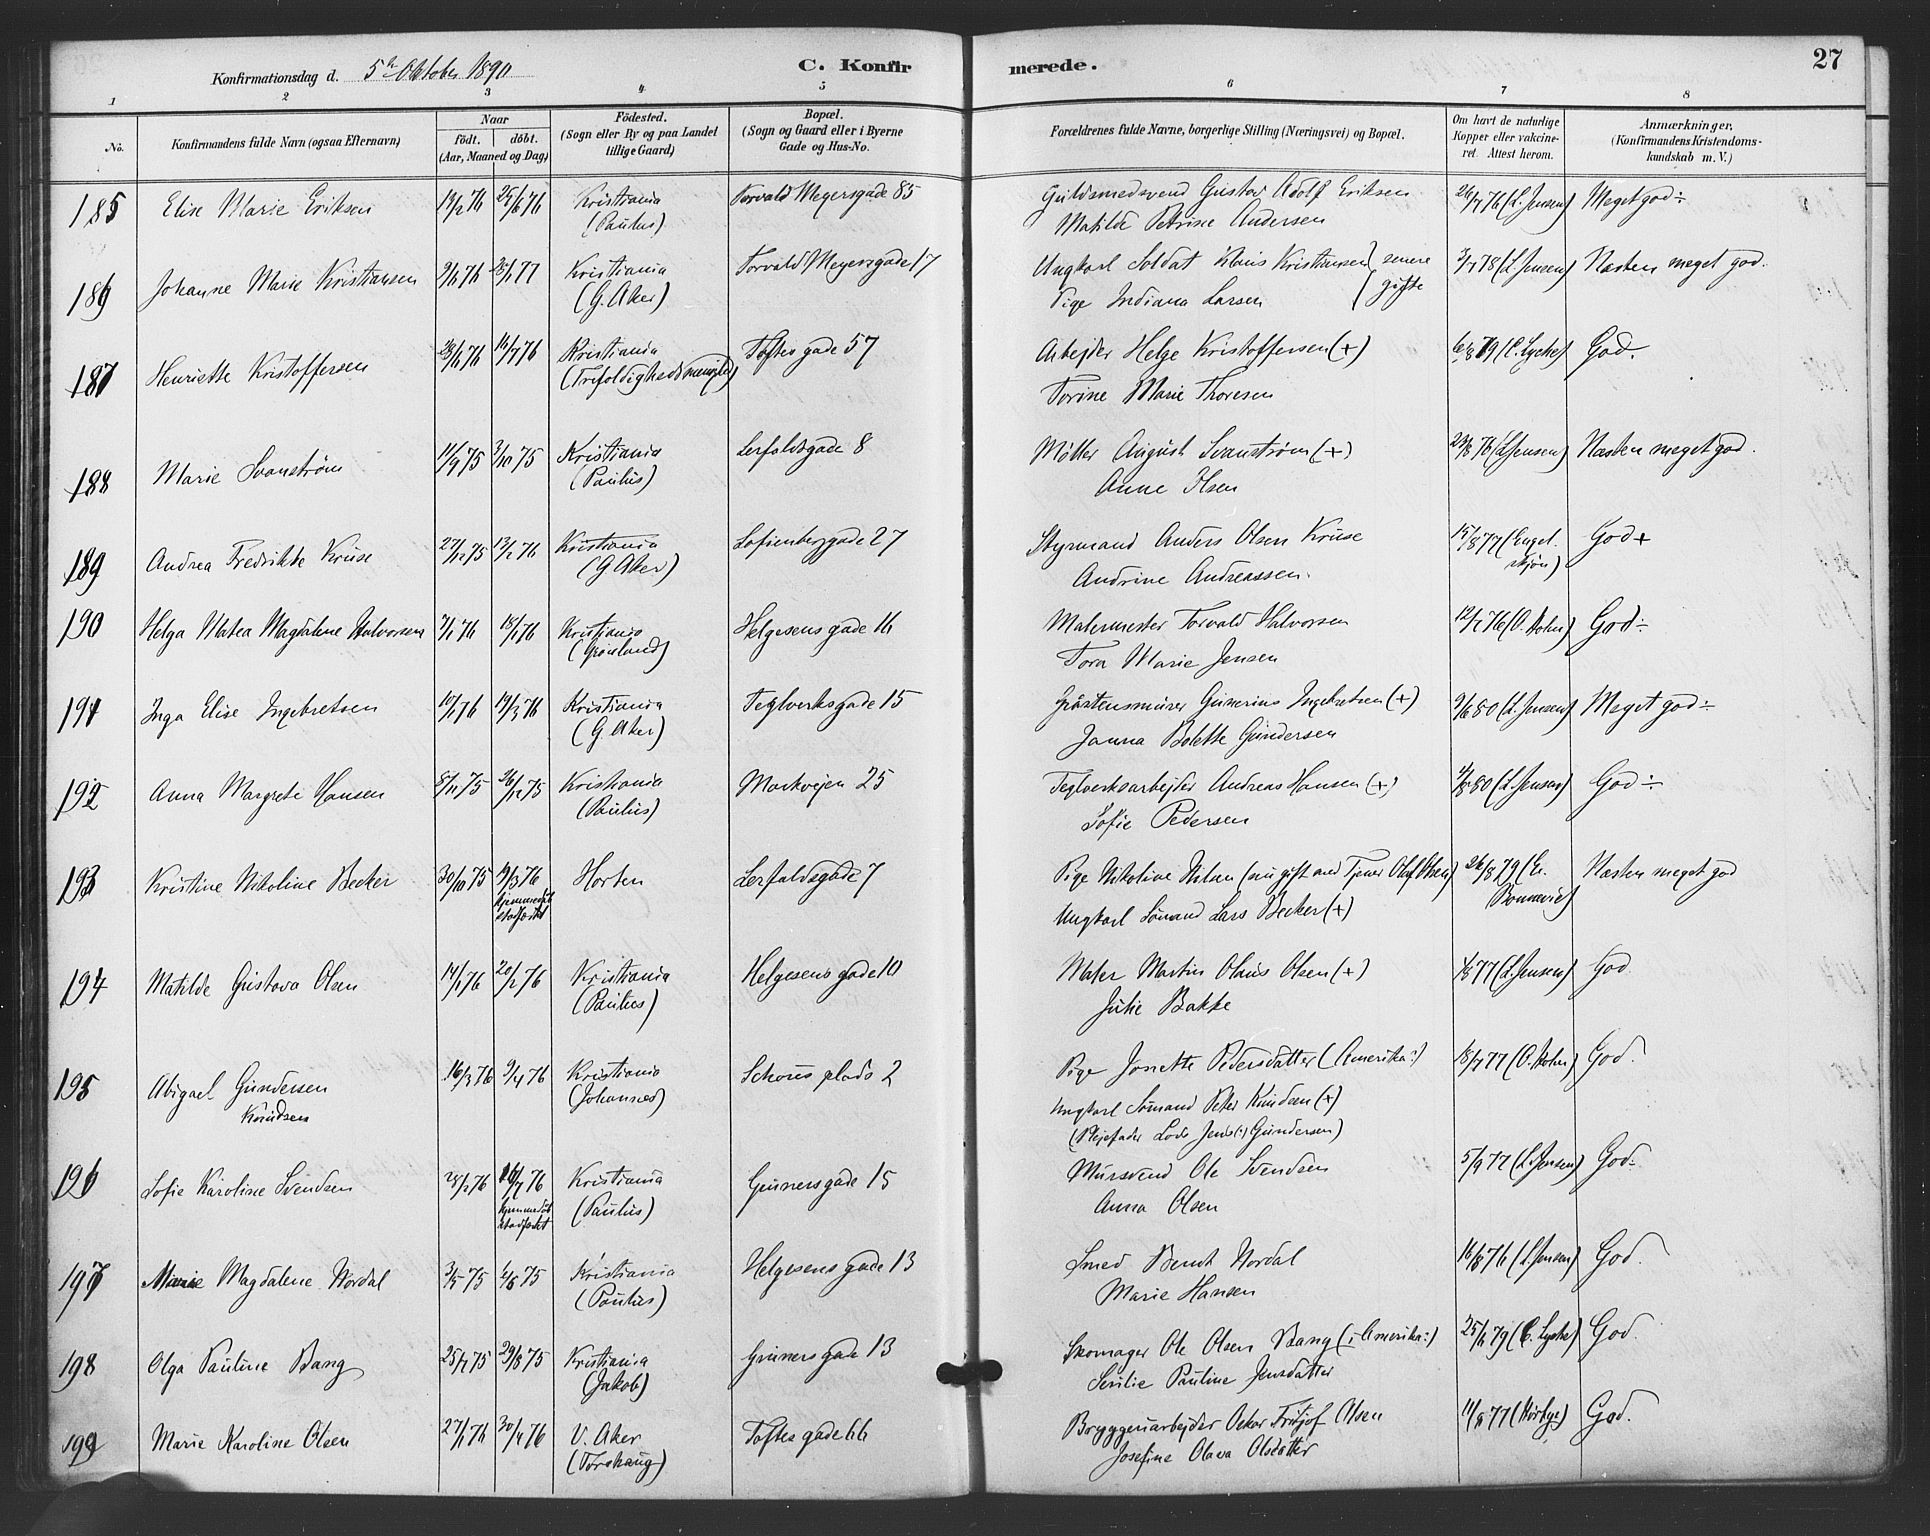 Konfirmationsdag d. 5te Oktober 1890
C. Konfirmerede.
27
1 2 3 4 5 6 7 8
No.
Konfirmandens fulde Navn (ogsaa Efternavn)
Naar
födt. döbt.
(Aar, Maaned og Dag)
Födested.
(Sogn eller By og paa Landet
tillige Gaard)
Bopæl.
(Sogn og Gaard eller i Byerne
Gade og Hus-No.
Forældrenes fulde Navne, borgerlige Stilling (Næringsvei) og Bopæl.
Om havt de naturlige
Kopper eller vakcine-
ret. Attest herom.
Anmærkninger.
(Konfirmandens Kristendoms-
kundskab m. V.)
185 Elise Marie Eriksen 19/2 76 25/6 76 Kristiania Torvald Meyersgade 85 Guldsmedsvend Gustav Adolf Eriksen 26/7 76 (L. Jensen) Meget god÷
(Paulus) Matilde Petrine Andersen
186 Johanne Marie Kristiansen Kristiania Torvald Meyersgade 17 Ungkarl Soldat Hans Kristiansen senere (L. Jensen) Næsten meget god.
(G. Aker) Pige Indiana Larsen gifte
187 Henriette Kristoffersen 16/7 76 Kristiania Toftesgade 57 Arbejder Helge Kristoffersen (+) 6/8 79 (C. Lyche) God.
(Trefoldighedsmenighed) Torine Marie Thoresen
188 Marie Svanstrøm 11/9 75 3/10 75 Kristiania Lerfaldsgade 8 Møller August Svanstrøm (+) 23/8 76 (L. Jensen) Næsten meget god.
(Paulus) Anne Olsen
189 Andrea Fredrikke Kruse 27/12 75 13/2 76 Kristiania Sofienberggade 27 Styrmand Anders Olsen Kruse 15/8 77 (Engel- God+
(G Aker) Andrine Andreassen. skjøn)
190 Helga Matea Magdalene Halvorsen 7/1 76 18/1 76 Kristiania Helgesens gade 16 Malermester Torvald Halvorsen (O. Holm) God÷
(Grønland) Tora Marie Jensen
191 Inga Elise Ingebretsen 10/1 76 19/3 76 Kristiania Teglverksgade 15 Gråstensmurer Gunerius Ingebretsen (+) 9/6 80 (L. Jensen) Meget god÷
(G. Aker) Janna Bolette Gundersen
192 Anna Margrete Hansen 8/11 75 26/12 75 Kristiania Markvejen 25 Teglverksarbejder Andreas Hansen (+) (L. Jensen) God÷
(Paulus) Sofie Pedersen
193 Kristine Nikoline Becker 30/10 75 19/3 76 Horten Lerfaldsgade 7 Pige Nikoline Nilsen (nu gift med Tjener Olaf Olsen) 26/8 79 (E. Næsten meget god
hjemmedåb
stadfæstet Ungkarl Sømand Lars Becker (+) Bonnevie)
194 Matilde Gustava Olsen 14/1 76 20/2 76 Kristiania Helgesens gade 10 Maler Martin Olaus Olsen (+) (L. Jensen) God
(Paulus) Julie Bakke
195 Abigael Gundersen 16/3 76 9/4 76 Kristiania Schous plads 2 Pige Jonette Pedersdatter (Amerika:) 18/7 77 (O. Holm) God.
Knudsen (Johannes) Ungkarl Sømand Peter Knudsen (+)
(Plejefader Lods Jens (:) Gundersen)
196 Sofie Karoline Svendsen 28/2 76 16/7 76 Kristiania Grünersgade 15 Mursvend Ole Svendsen 5/9 77 (L. Jensen) God÷
hjemmedåb
stadfæstet (Paulus) Anna Olsen
197 Marie Magdalene Nordal 3/5 75 Kristiania Helgesens gade 13 Smed Bernt Nordal 16/8 76 (L. Jensen) God.
(Paulus) Marie Hansen
198 Olga Pauline Bang 25/7 75 29/8 75 Kristiania Grüners gade 13 Skomager Ole Olsen Bang (:Amerika:) (C. Lyche) God.
(Jakob) Serilie Pauline Jensdatter
199 Marie Karoline Olsen 27/1 76 30/4 76 V. Aker Toftes gade 66 Bryggeriarbejder Oskar Fritjof Olsen 11/8 77 (Hørbye) God.
(Torshaug) Josefine Olava Olsdatter